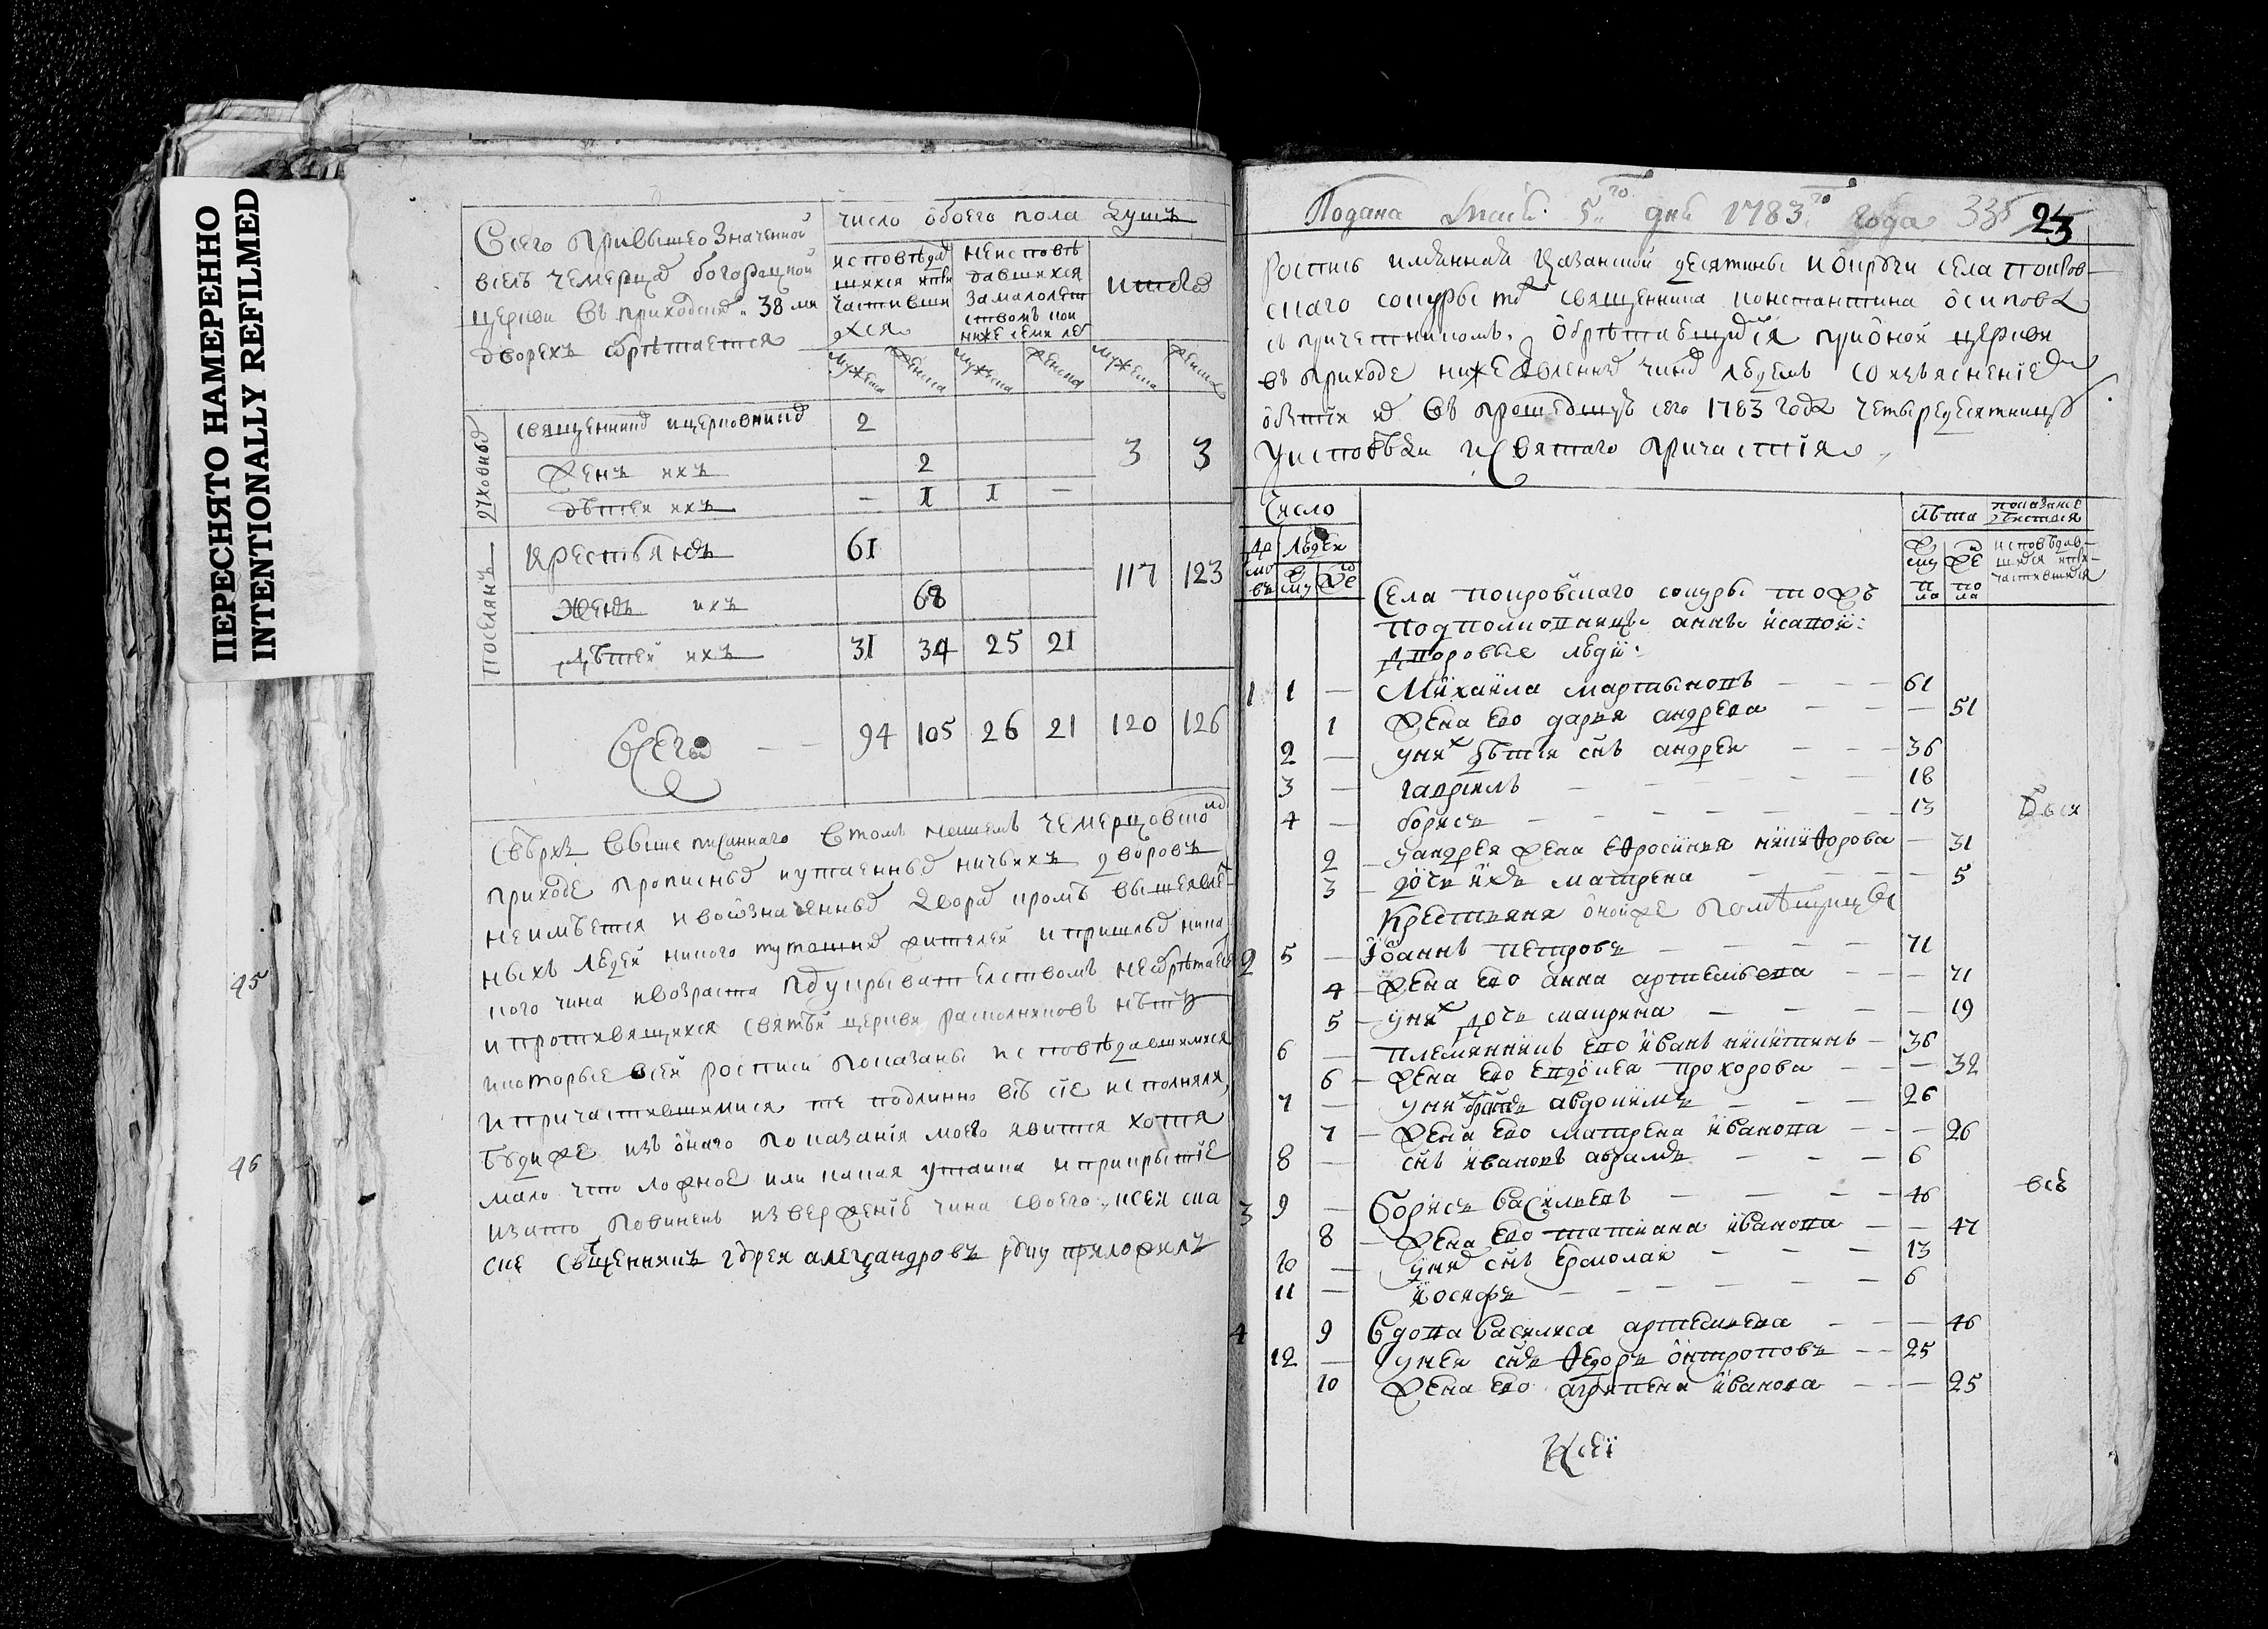 ПЕРЕСНЯТО НАМЕРЕННО
INTENTIONALLY REFILMED
45
46
Всего при вышеозначенной
в селѣ
церкви въ приходских 38 ми
дворехъ обрѣтается
число обоего пола душъ
исповѣдавшихся и причастившихся
неисповѣдавшихся за малолетствомъ
итого
мужеска женска мужеска женска мужеска женска
духовных
священник и церковник 2
жен ихъ 2 3 3
дѣтей ихъ — 1 1 —
поселянъ
крестьян 61
жен ихъ 68 117 123
дѣтей ихъ 31 34 25 21
Всего — — 94 105 26 21 120 126
Сверхъ выше писаннаго в томъ моемъ
приходе прописных и утаенных ничьихъ дворовъ
не имѣется и в означенных двора кромѣ вышеявлен-
ныхъ людей никого тутошних жителей и пришлых никa-
кого чина и возраста под укрывателствомъ не обрѣтается
и противящихся святѣй церкви раскольниковъ нѣтъ
и которые в сей росписи показаны исповѣдавшимися
и причастившимися те подлинно все сіе исполняли,
буди же изъ онаго показанія моего явится хотя
мало что ложное или какая утайка и прикрытіе
и за то повиненъ извержению чина своего, к сей ска
ске священникъ александровъ руку приложилъ
Подана маия 5го дня 1783го года 335 23
Роспись казанской десятины и округи села Покров-
скаго сокуры тож священника константина осипова
съ причетникомъ, обрѣтающихся при оной церкви
въ приходе нижеявленных чинов людемъ со изъясненіем
бытия их въ прошедшую сего 1783 года четыредесятницу
у исповѣди и Святаго причастія
Число
дворовъ
людей
му же
лѣта
показаніе действия
муж пола
же пола
исповѣдавшихся и причастившихся
Села покровскаго сокуры тожъ
подполковницы анны
дворовые люди:
1 1 — Михаила мартыновъ — — — 61
1 жена ево дарья андреева — — — 51
2 — у них дѣти сынъ андреи — — — 36
3 — гавриилъ — — — 18
4 — борисъ — — — — — 13
вси
2 — у андрея жена ефросинья никифорова — 31
3 — дочь ихъ матрена — — — — 5
Крестьяня оной же помѣщицы
2 5 — Иоаннъ петровъ — — — — 71
4 — жена ево анна артемьева — — — 71
5 — у них дочь маирина — — — — 19
6 — племянникъ ево иванъ никитинъ — 36
6 — жена ево евдокея прохорова — — — 32
7 — у них братъ авдокимъ — — — 26
7 — жена ево матрена иванова — — — 26
8 — сынъ ивановъ абрамъ — — — 6
всѣ
3 9 — Борисъ Васильевъ — — — — 46
8 — жена ево татиана иванова — — 47
10 — у них сынъ ермолаи — — — 13
11 — иосифъ — — — — — 6
4 9 Вдова Василиса артемиева — — — 46
12 — у неи сынъ Федоръ онтроповъ — — 25
10 жена ево агрипена иванова — — — 25
К сеи